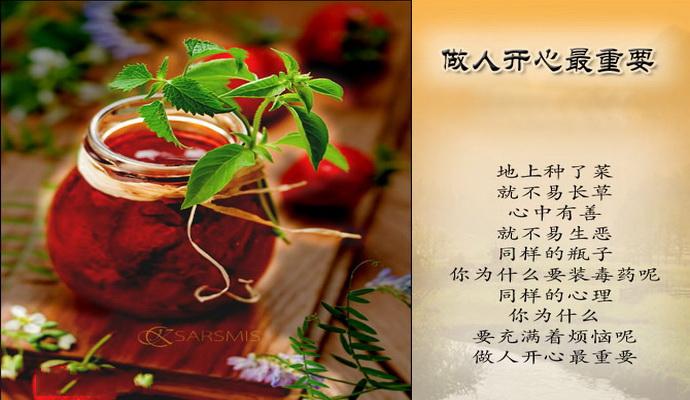 做人开心最重要
地上种了菜
就不易长草
心中有善
就不易生恶
同样的瓶子
你为什么要装毒药呢
同样的心理
你为什么
要充满着烦恼呢
做人开心最重要
SARSMIS